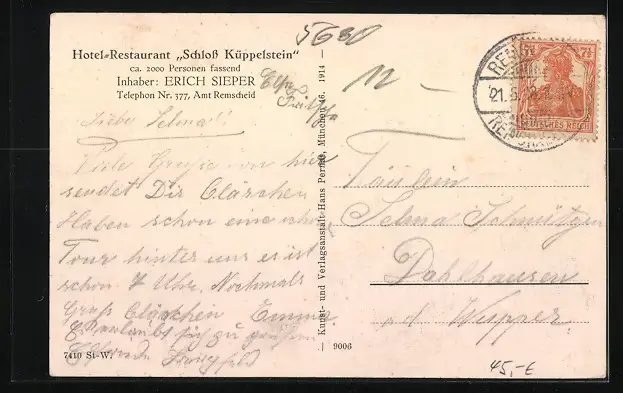 5630
Hotel-Restaurant „Schloß Küppelstein"
ca. 2000 Personen fassend
Inhaber: ERICH SIEPER
Telephon Nr. 377, Amt Remscheid
12 -
Liebe Selma!!
Viele Grüße von hier
sendet Dir Clärchen
Haben schon eine
Tour hinter uns es ist
schon 7 Uhr. Nochmals
Gruß Clärchen Emma
Erlaubt sich zu grüßen
7410 St-W.
— Kunst- und Verlagsanstalt Hans Pernat, München 46. 1914 —
9006
7½ 7½
DEUTSCHES REICH
REMSCHEID
21.5.
Fräulein
Selma Schmitzen
Dahlhausen
a/d Wupper
45,-E